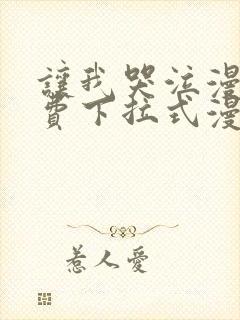 讓我哭泣漫
費下拉式漫
惹人愛